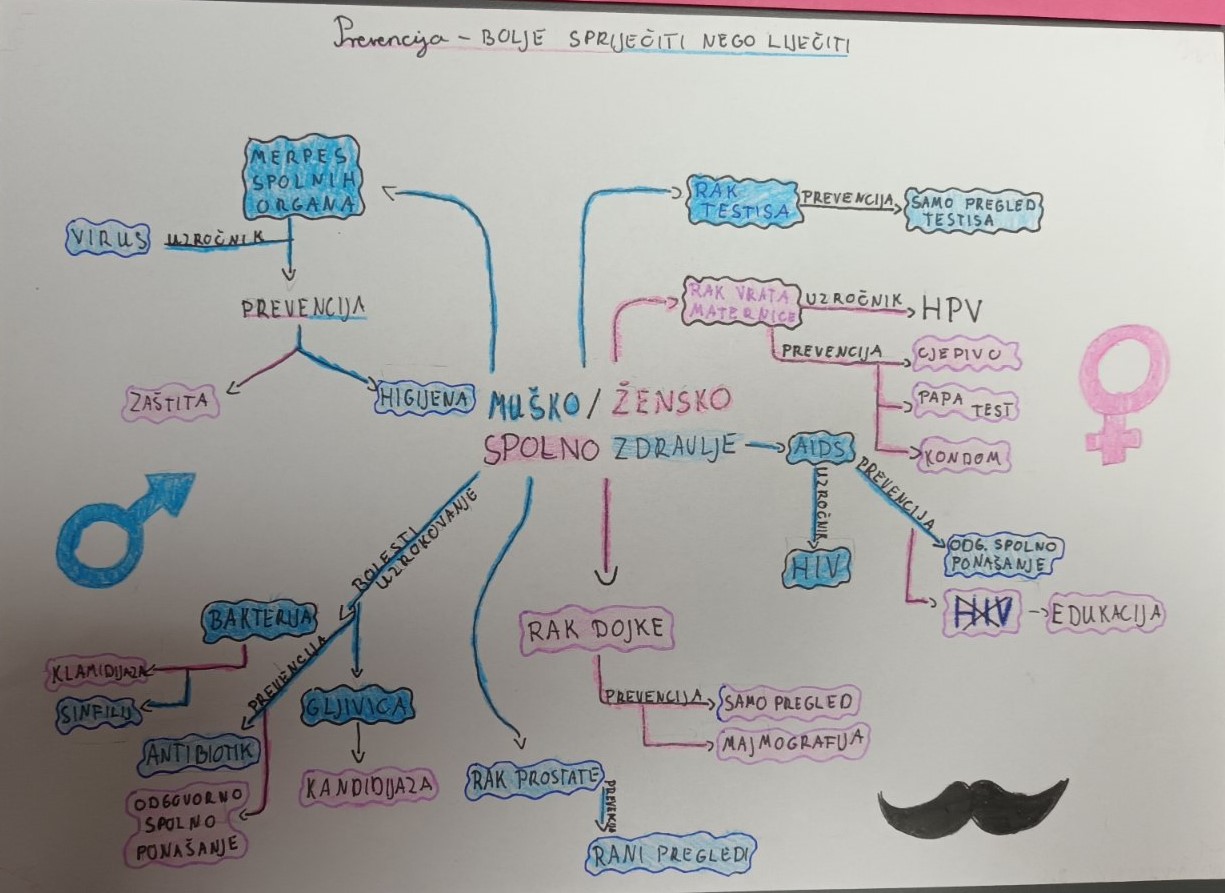 Prevencija - BOLJE SPRIJEČITI NEGO LIJEČITI
MERPES
SPOLNIH
ORGANA
VIRUS
UZROČNIK
PREVENCIJA
ZAŠTITA
HIGIJENA
RAK
TESTISA
PREVENCIJA
SAMO PREGLED
TESTISA
RAK VRATA
MATERNICE
UZROČNIK
HPV
PREVENCIJA
CJEPIVO
PAPA
TEST
KONDOM
MUŠKO / ŽENSKO
SPOLNO ZDRAVLJE
AIDS
UZROČNIK
HIV
PREVENCIJA
ODG. SPOLNO
PONAŠANJE
EDUKACIJA
BOLESTI
UZROKOVANJE
BAKTERIJA
KLAMIDIJAZA
SINFILIJ
PREVENCIJA
ANTIBIOTIK
ODGOVORNO
SPOLNO
PONAŠANJE
GLJIVICA
KANDIDIJAZA
RAK PROSTATE
RANI PREGLEDI
RAK DOJKE
PREVENCIJA
SAMO PREGLED
MAJMOGRAFIJA